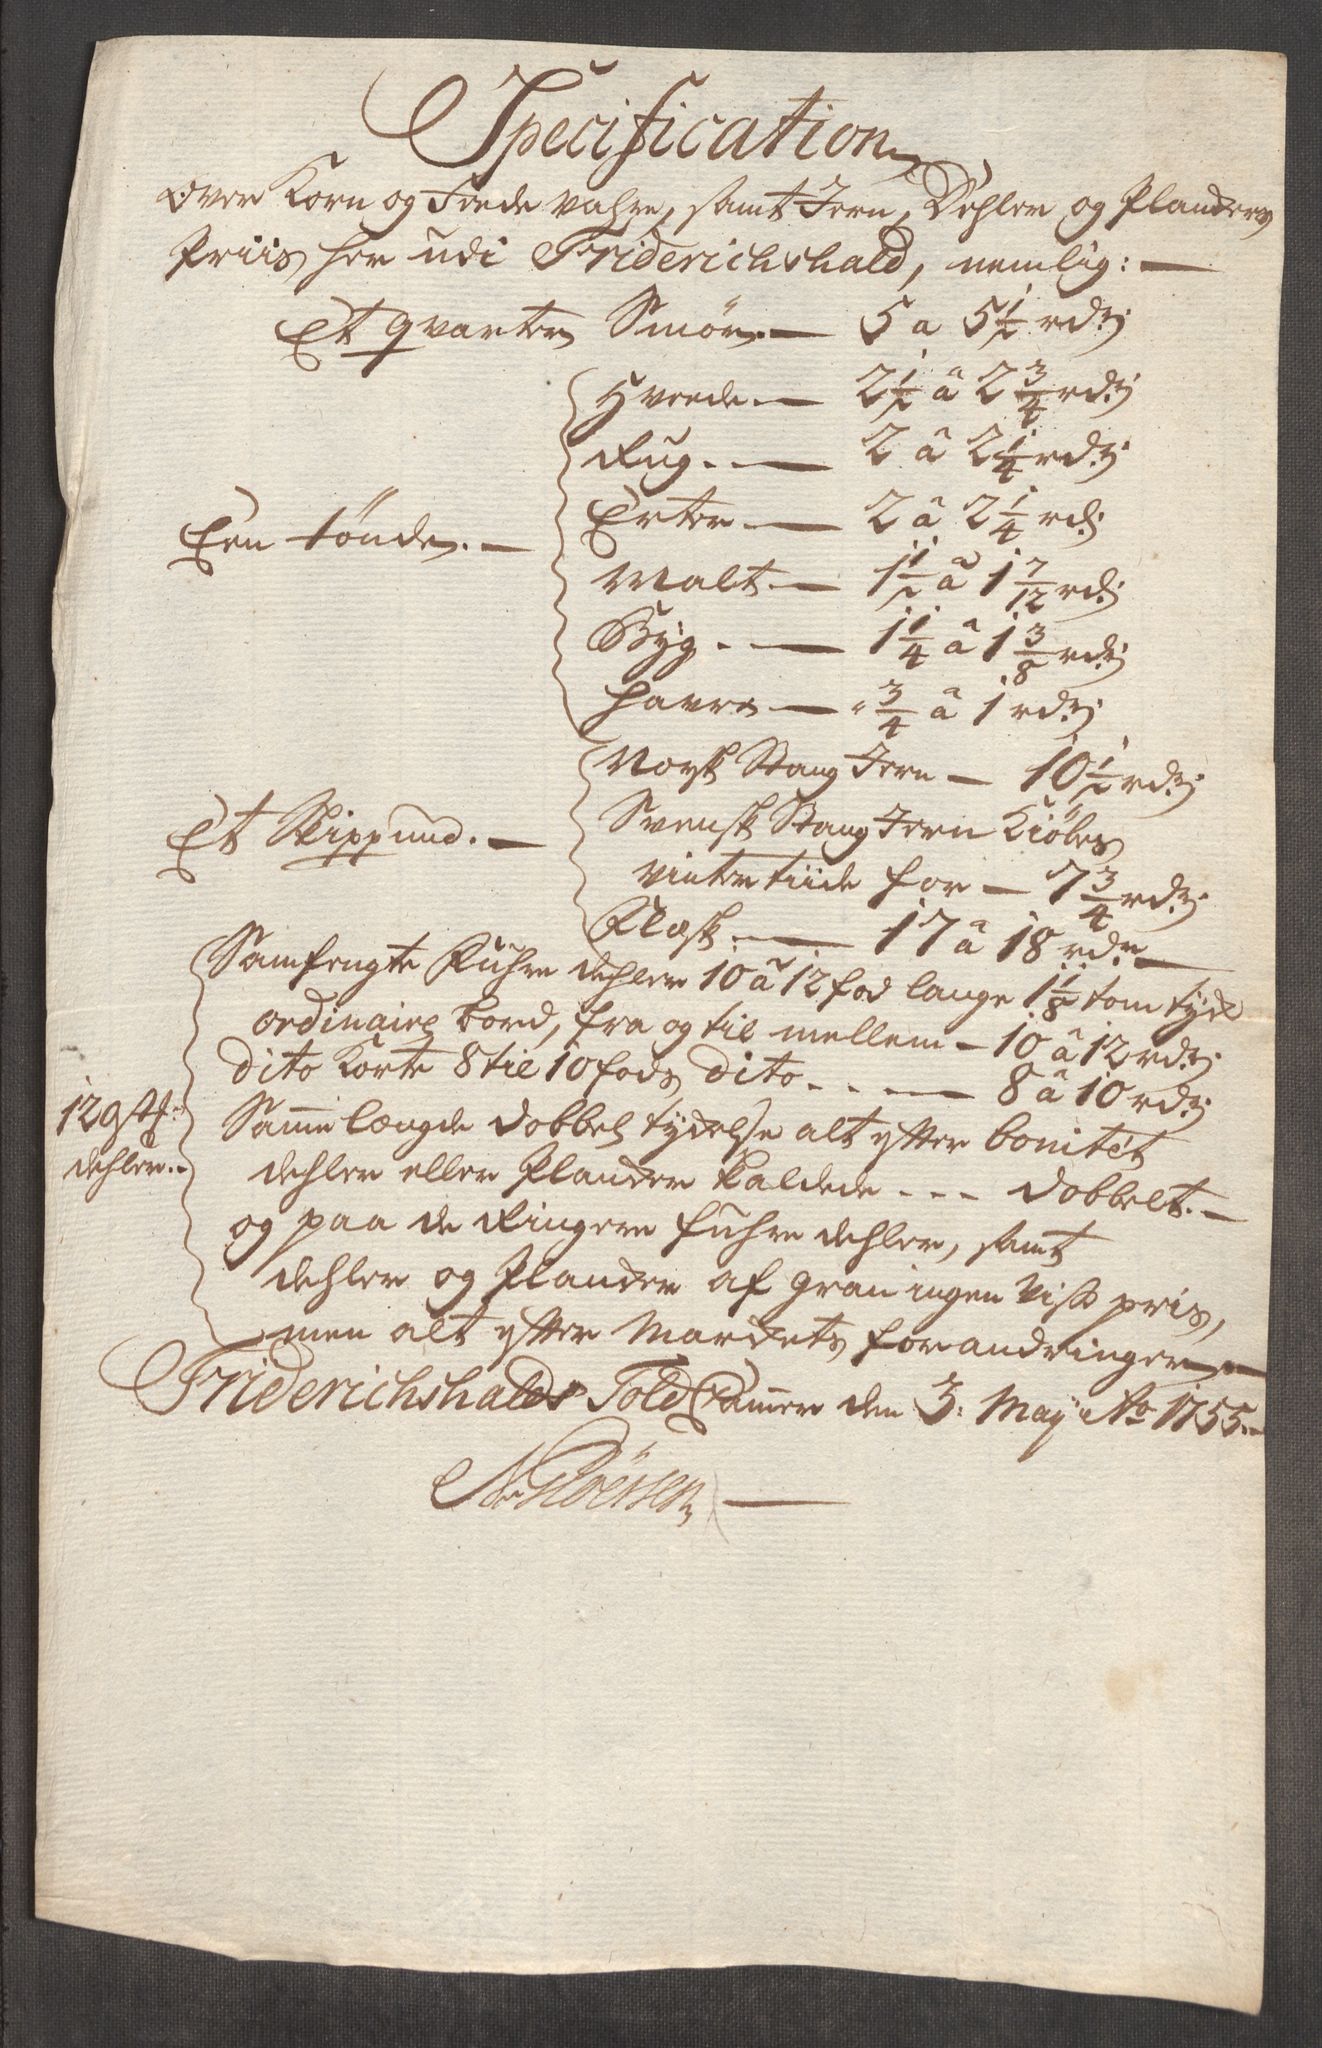 Specification
Over Korn og Feede vahre, samt Jern, Dehler og Plankers
Priis her udi Friderichshald, nemlig: —
Et qvarter Smör — 5 a 5 1/2 rdr:
Hvede — 2 1/2 â 2 3/4 rdr:
Rug — 2 â 2 1/4 rdr:
Een tönde — Erter — 2 â 2 1/4 rdr:
Malt — 1 1/2 â 1 7/12 rdr:
Byg — 1 1/4 â 1 3/8 rdr:
Havre — 3/4 â 1 rdr:
Norsk Stang Jern — 10 1/2 rdr:
Et Skippund — Svensk Stang Jern Kiöbes
vintertiide for — 7 3/4 rdr:
Flæsk — 17 â 18 rdr —
Samfengte Fuhre dehler 10 â 12 fod lange 1 1/8 tom tyk
ordinaire bord, fra og til mellem — 10 â 12 rdr:
dito Korte 8 til 10 fods dito — 8 â 10 rdr:
12 gstk: Samme længde dobbel tydelse alt efter bonitet
dehler. dehler eller Planker kaldede - - - dobbelt. —
og paa de Ringere fuhre dehler, samt
dehler og Planker af gran ingen viss pris,
men alt efter Markets forandringer. —
Friderichshalds Told Cammer den 3. Maÿ Ao 1755. —